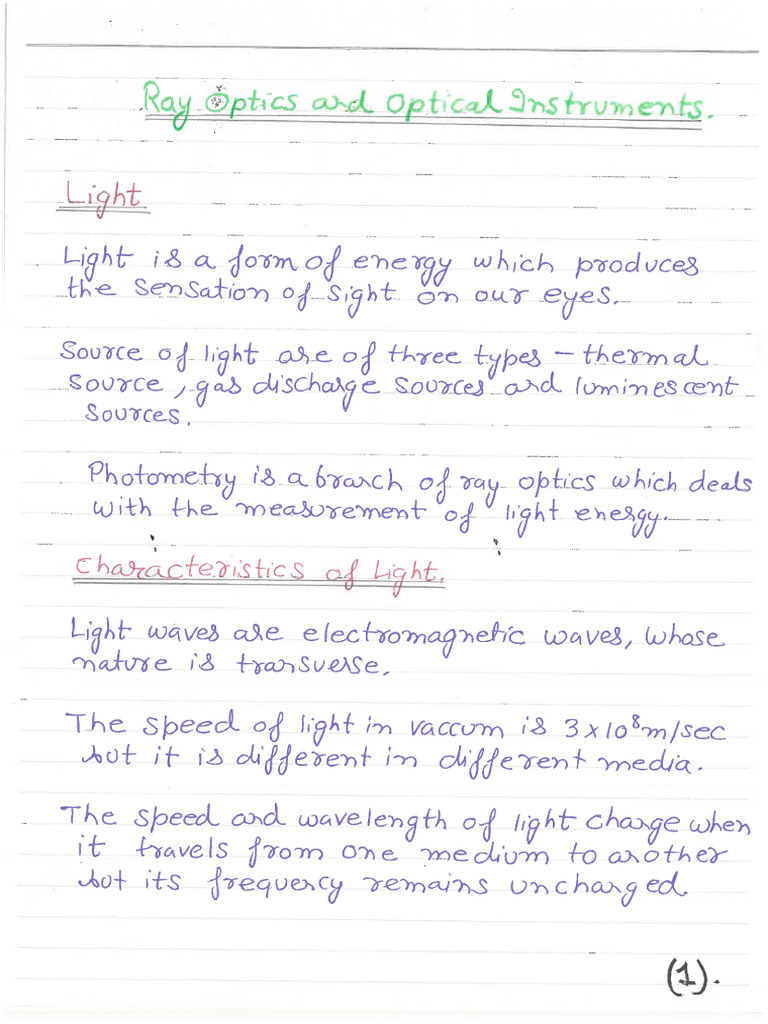 Ray Optics and Optical Instruments.
Light
Light is a form of energy which produces
the sensation of sight on our eyes.
Source of light are of three types – thermal
source, gas discharge sources and luminescent
sources.
Photometry is a branch of ray optics which deals
with the measurement of light energy.
Characteristics of Light.
Light waves are electromagnetic waves, whose
nature is transverse.
The speed of light in vaccum is 3 x 10⁸m/sec
but it is different in different media.
The speed and wavelength of light change when
it travels from one medium to another
but its frequency remains unchanged
(1).